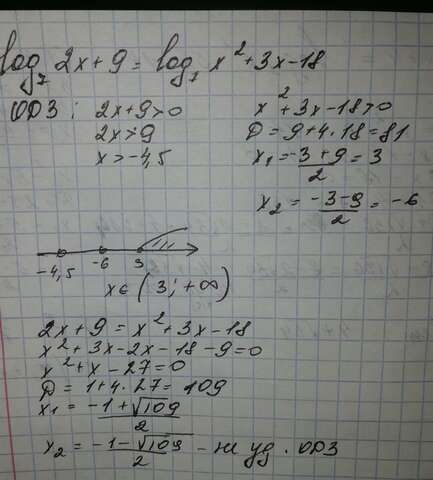 log₇ 2x+9 = log₇ x²+3x-18
ОДЗ: 2x+9>0
2x>-9
x>-4,5
x²+3x-18>0
D=9+4·18=81
x₁=(-3+9)/2=3
x₂=(-3-9)/2=-6
-4,5 -6 3
x∈(3;+∞)
2x+9=x²+3x-18
x²+3x-2x-18-9=0
x²+x-27=0
D=1+4·27=109
x₁=(-1+√109)/2
x₂=(-1-√109)/2 - не уд. ОДЗ